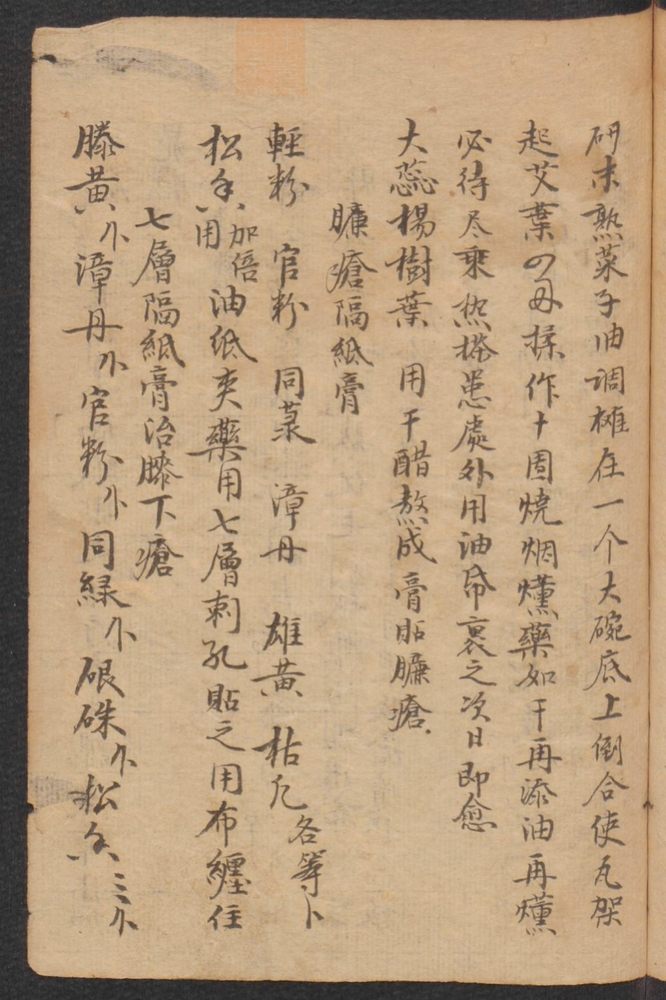 研末熟菜子油调摊在一个大碗底上倒合使瓦架
起艾葉四両揉作十團烧烟燻藥如干再添油再燻
必待尽乘热搽患處外用油帋裹之次日即愈
大蕊楊樹葉 用干醋熬成膏貼臁瘡
臁瘡隔紙膏
輕粉 官粉 同菉 漳丹 雄黄 枯凡 各等卜
松香 加倍用 油纸夹藥用七層刺孔貼之用布纏住
七層隔紙膏治膝下瘡
滕黄 漳丹 官粉 同緑 硍硃 松香三